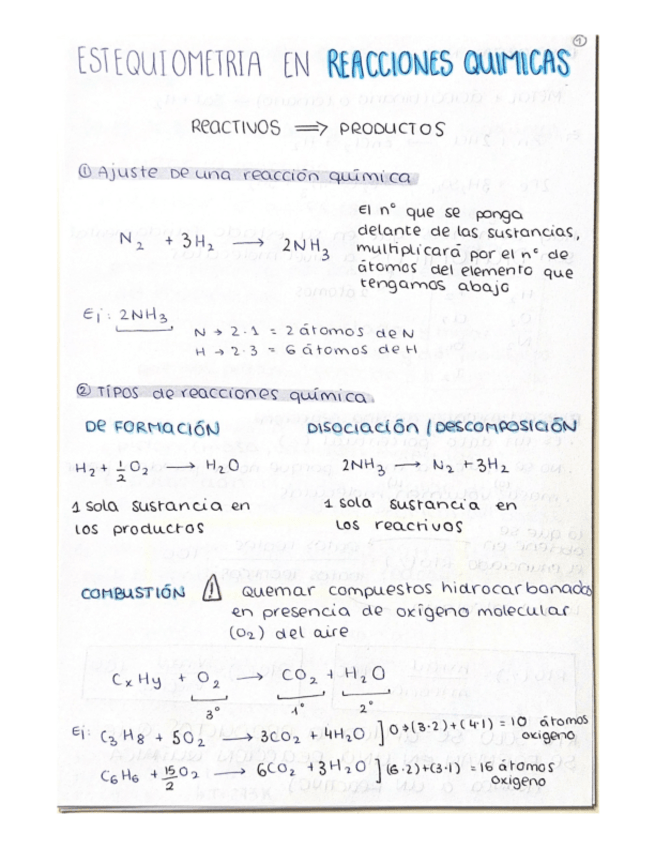 1
ESTEQUIOMETRIA EN REACCIONES QUIMICAS
REACTIVOS ⟹ PRODUCTOS
① Ajuste de una reacción química
El nº que se ponga
delante de las sustancias,
multiplicará por el nº de
átomos del elemento que
tengamos abajo
N₂ + 3H₂ ⟶ 2NH₃
Ej: 2NH₃
N → 2·1 = 2 átomos de N
H → 2·3 = 6 átomos de H
② Tipos de reacciones química
DE FORMACIÓN
H₂ + 1/2 O₂ ⟶ H₂O
1 sola sustancia en
los productos
DISOCIACIÓN / DESCOMPOSICIÓN
2NH₃ ⟶ N₂ + 3H₂
1 sola sustancia en
los reactivos
COMBUSTIÓN ⚠ Quemar compuestos hidrocarbonados
en presencia de oxígeno molecular
(O₂) del aire
CxHy + O₂ ⟶ CO₂ + H₂O
3° 1° 2°
Ej: C₃H₈ + 5O₂ ⟶ 3CO₂ + 4H₂O ] O→(3·2)+(4·1) = 10 átomos
oxigeno
C₆H₆ + 15/2 O₂ ⟶ 6CO₂ + 3H₂O ] (6·2)+(3·1) = 16 átomos
oxigeno